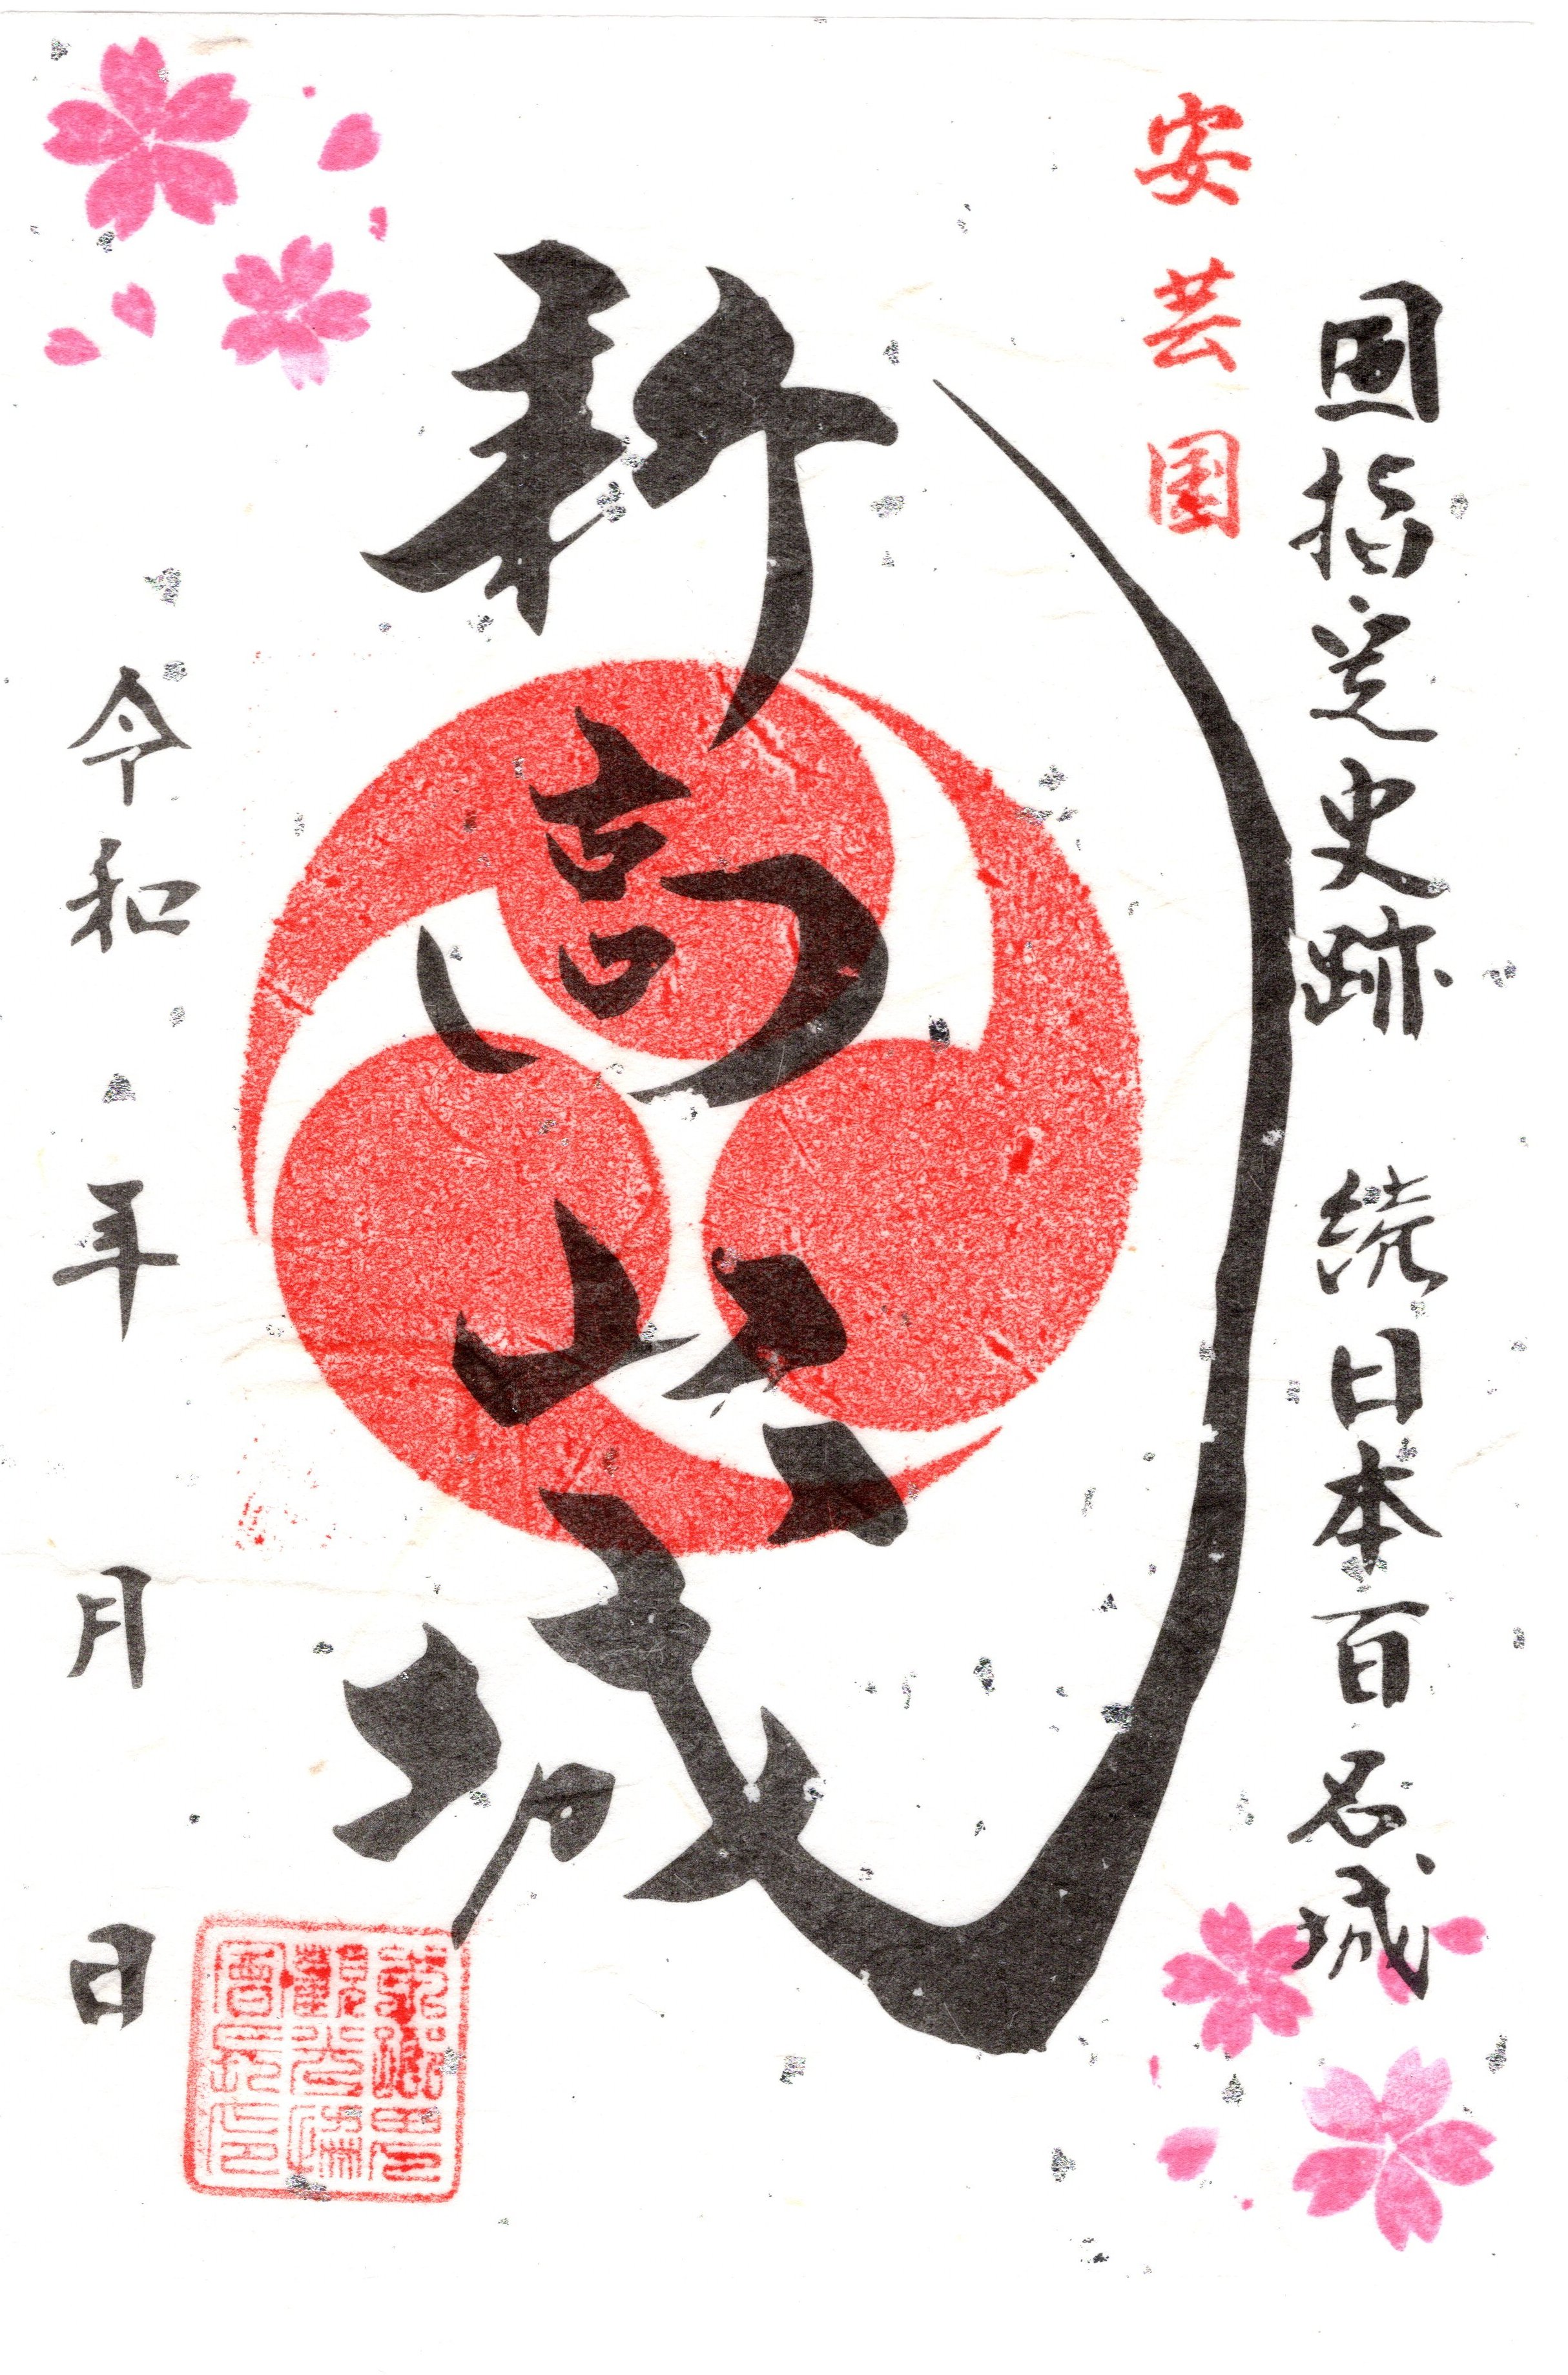 国指定史跡 続日本百名城
安芸国
新高山城
令和 年 月 日